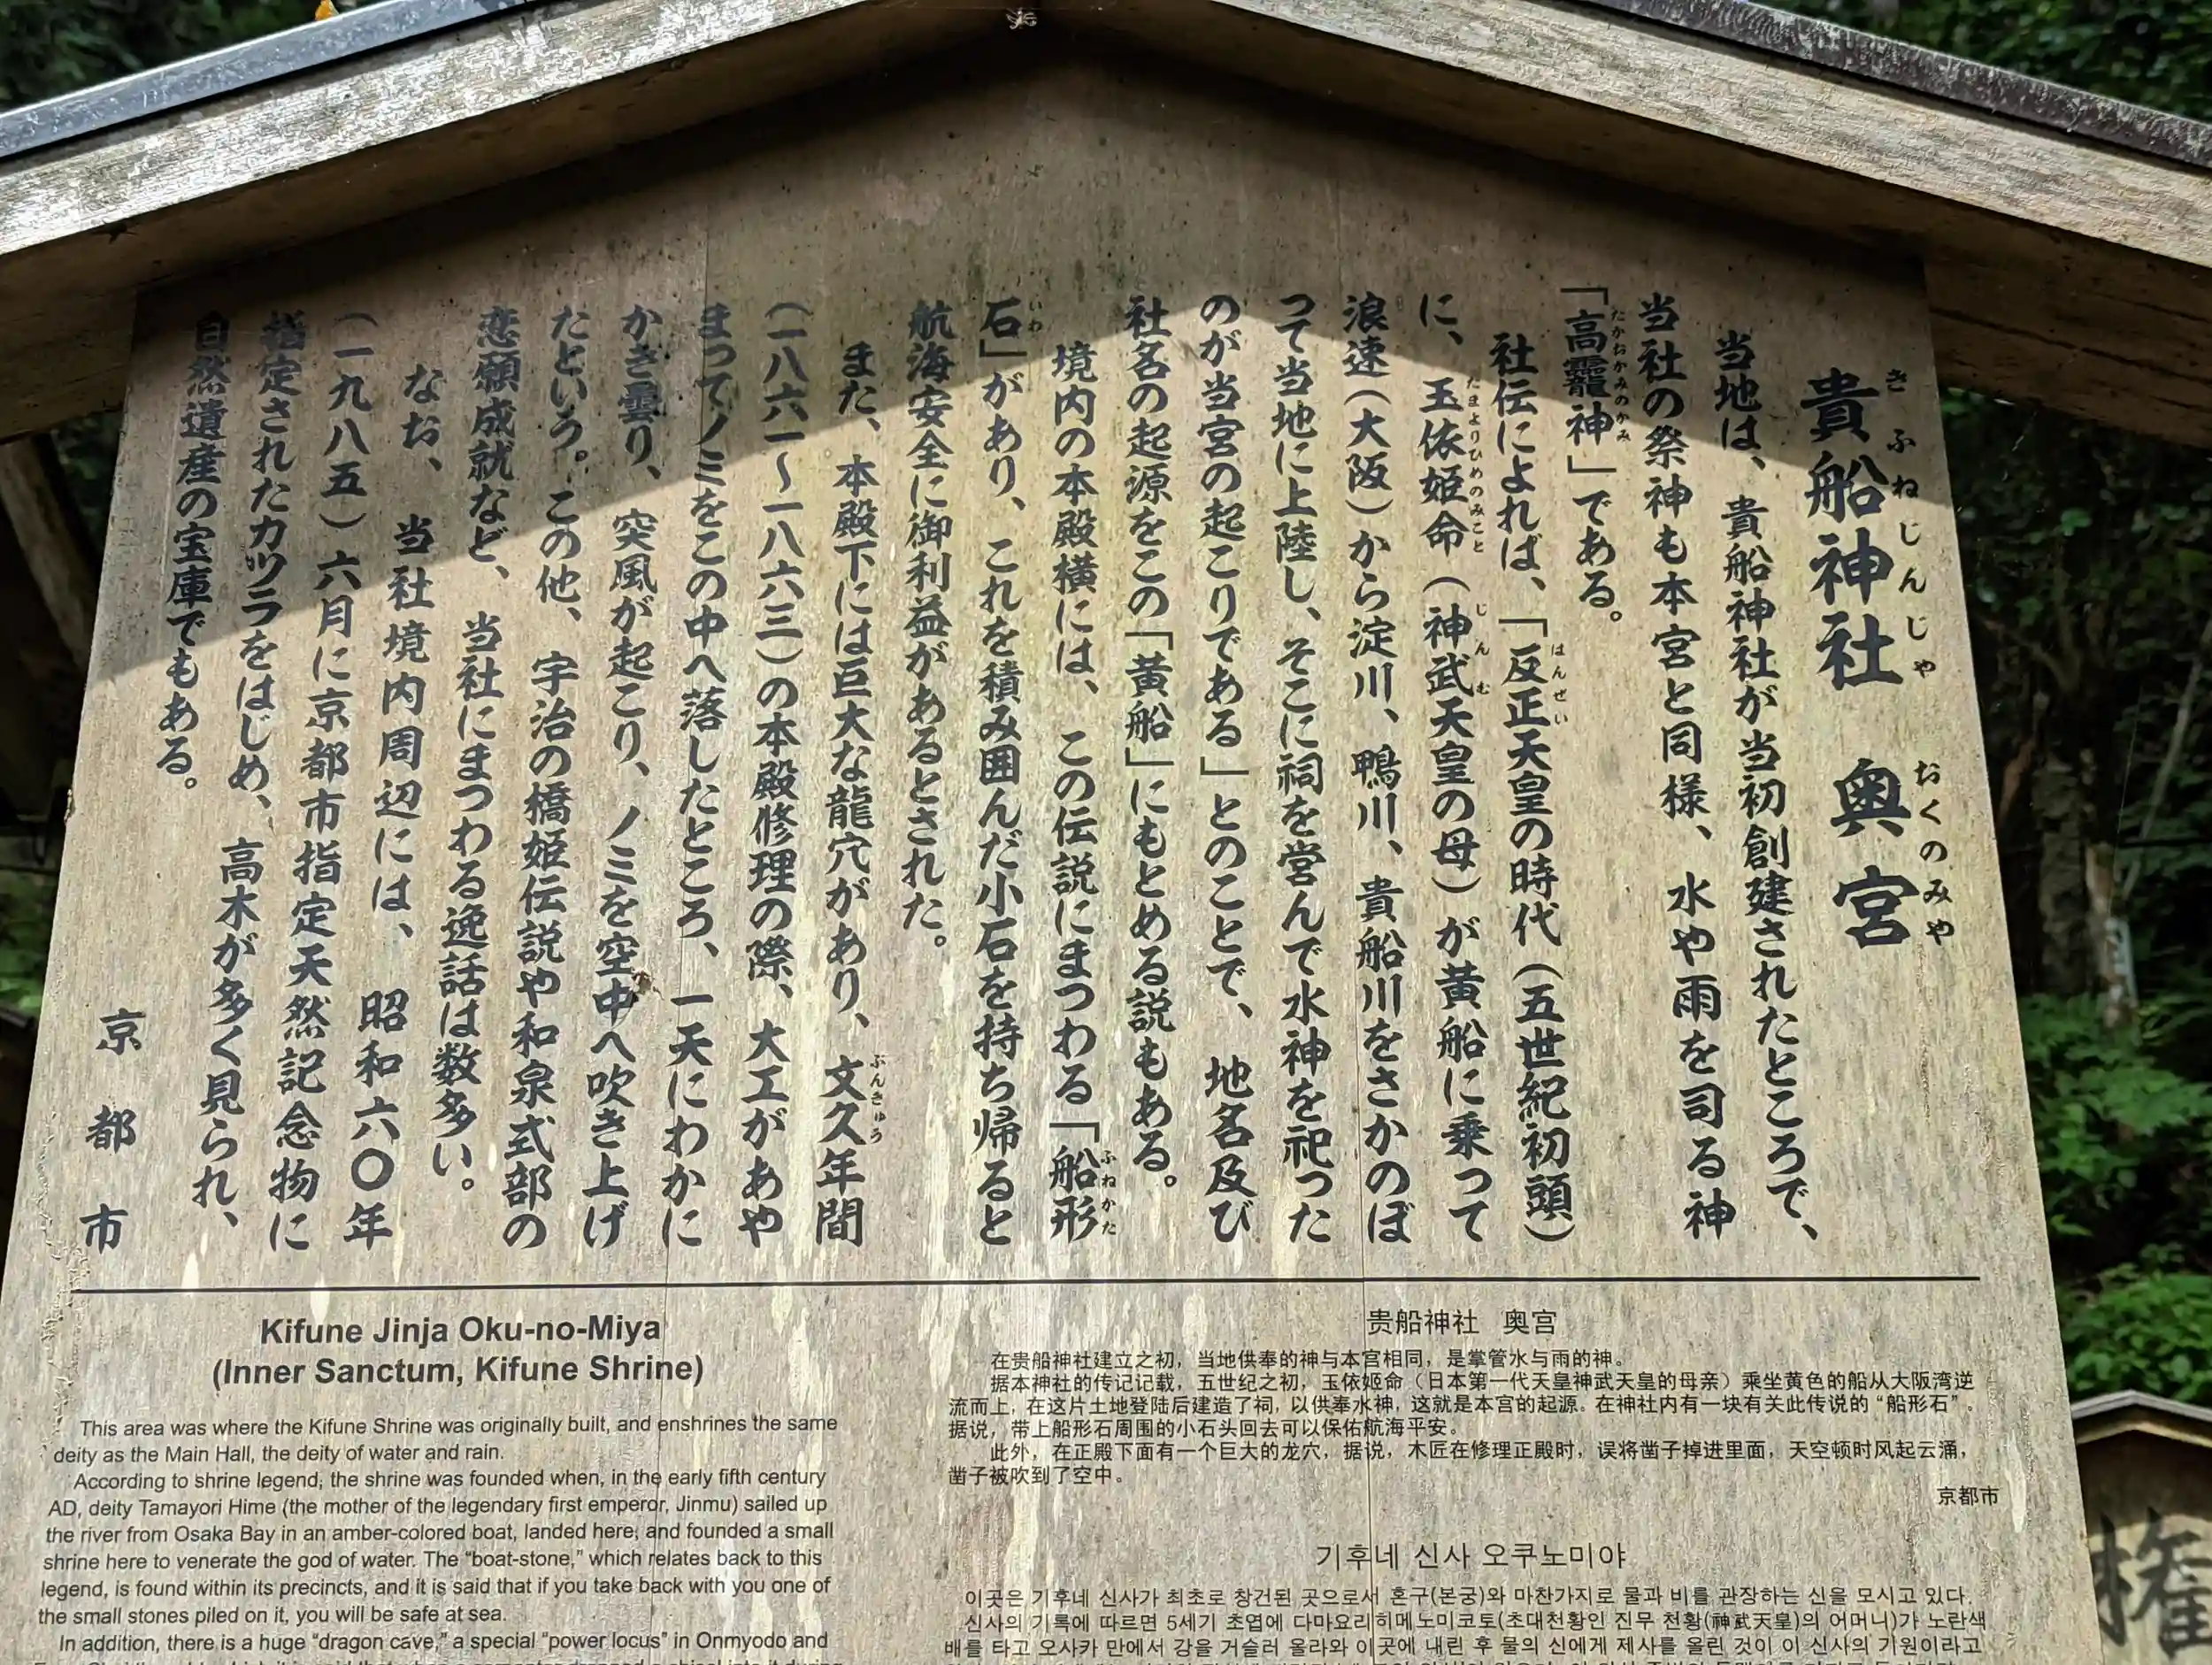 貴船神社 奥宮
きふねじんじゃ おくのみや
当地は、貴船神社が当初創建されたところで、
当社の祭神も本宮と同様、水や雨を司る神
「高龗神」である。
たかおかみのかみ
社伝によれば、「反正天皇の時代(五世紀初頭)
はんぜい
に、玉依姫命(神武天皇の母)が黄船に乗って
たまよりひめのみこと じんむ
浪速(大阪)から淀川、鴨川、貴船川をさかのぼ
って当地に上陸し、そこに祠を営んで水神を祀った
のが当宮の起こりである」とのことで、地名及び
社名の起源をこの「黄船」にもとめる説もある。
境内の本殿横には、この伝説にまつわる「船形
ふねかた
石」があり、これを積み囲んだ小石を持ち帰ると
いわ
航海安全に御利益があるとされた。
また、本殿下には巨大な龍穴があり、文久年間
ぶんきゅう
(一八六一~一八六三)の本殿修理の際、大工があや
まってノミをこの中へ落したところ、一天にわかに
かき曇り、突風が起こり、ノミを空中へ吹き上げ
たという。この他、宇治の橋姫伝説や和泉式部の
恋願成就など、当社にまつわる逸話は数多い。
なお、当社境内周辺には、昭和六〇年
(一九八五)六月に京都市指定天然記念物に
指定されたカツラをはじめ、高木が多く見られ、
自然遺産の宝庫でもある。
京都市
Kifune Jinja Oku-no-Miya
(Inner Sanctum, Kifune Shrine)
This area was where the Kifune Shrine was originally built, and enshrines the same
deity as the Main Hall, the deity of water and rain.
According to shrine legend, the shrine was founded when, in the early fifth century
AD, deity Tamayori Hime (the mother of the legendary first emperor, Jinmu) sailed up
the river from Osaka Bay in an amber-colored boat, landed here, and founded a small
shrine here to venerate the god of water. The “boat-stone,” which relates back to this
legend, is found within its precincts, and it is said that if you take back with you one of
the small stones piled on it, you will be safe at sea.
In addition, there is a huge “dragon cave,” a special “power locus” in Onmyodo and
贵船神社 奥宫
在贵船神社建立之初，当地供奉的神与本宫相同，是掌管水与雨的神。
据本神社的传记记载，五世纪之初，玉依姬命（日本第一代天皇神武天皇的母亲）乘坐黄色的船从大阪湾逆
流而上，在这片土地登陆后建造了祠，以供奉水神，这就是本宫的起源。在神社内有一块有关此传说的“船形石”。
据说，带上船形石周围的小石头回去可以保佑航海平安。
此外，在正殿下面有一个巨大的龙穴，据说，木匠在修理正殿时，误将凿子掉进里面，天空顿时风起云涌，
凿子被吹到了空中。
京都市
기후네 신사 오쿠노미야
이곳은 기후네 신사가 최초로 창건된 곳으로서 혼구(본궁)와 마찬가지로 물과 비를 관장하는 신을 모시고 있다.
신사의 기록에 따르면 5세기 초엽에 다마요리히메노미코토(초대천황인 진무 천황(神武天皇)의 어머니)가 노란색
배를 타고 오사카 만에서 강을 거슬러 올라와 이곳에 내린 후 물의 신에게 제사를 올린 것이 이 신사의 기원이라고
権